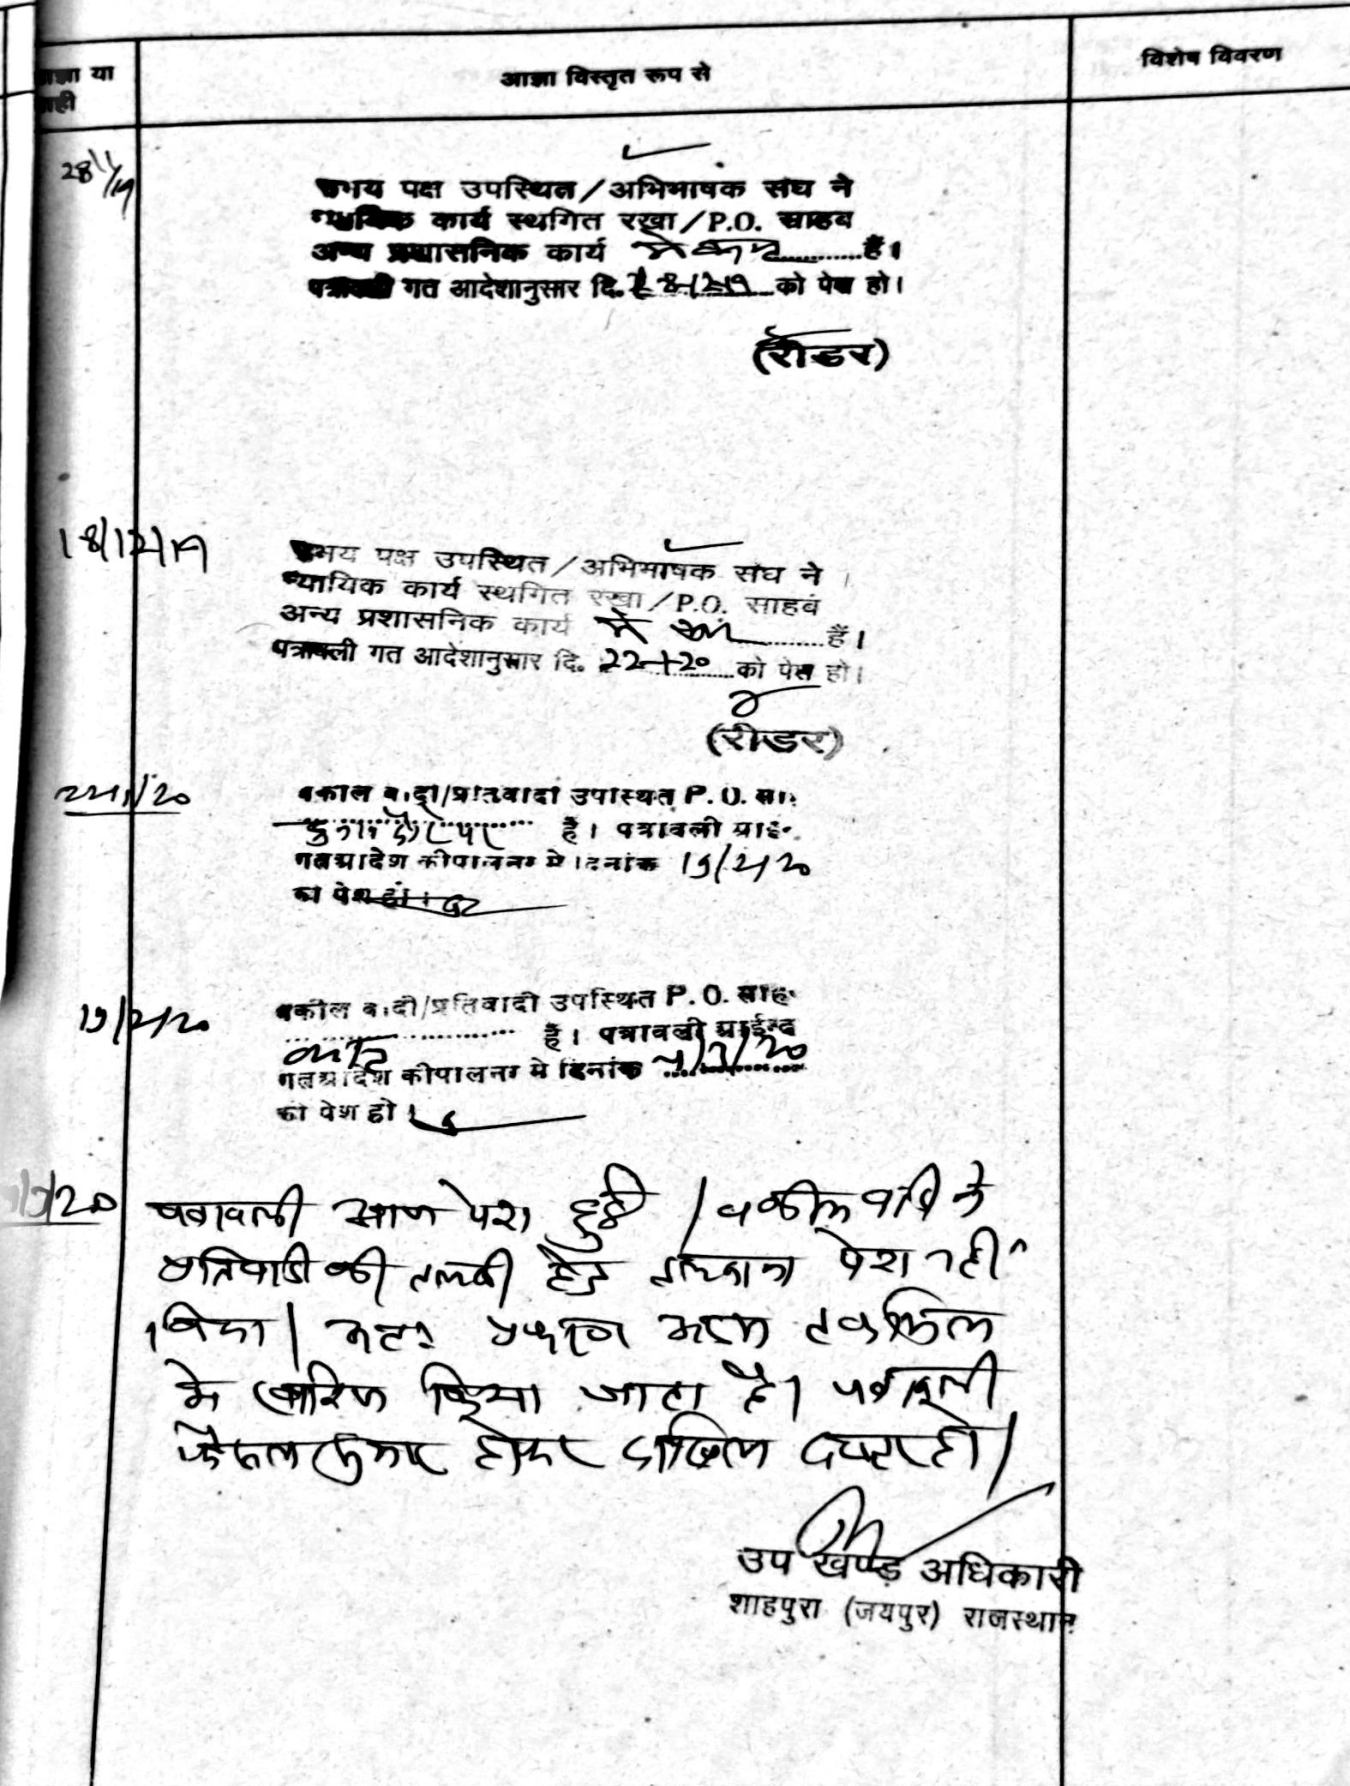 आज्ञा या
आज्ञा विस्तृत रूप से
विशेष विवरण
28/11/19
उभय पक्ष उपस्थित/अभिभाषक संघ ने
न्यायिक कार्य स्थगित रखा/P.O. साहब
अन्य प्रशासनिक कार्य में व्यस्त हैं।
पत्रावली गत आदेशानुसार दि. 18-12-19 को पेश हो।
(रीडर)
18/12/19
उभय पक्ष उपस्थित/अभिभाषक संघ ने
न्यायिक कार्य स्थगित रखा/P.O. साहब
अन्य प्रशासनिक कार्य में व्यस्त हैं।
पत्रावली गत आदेशानुसार दि. 22-1-20 को पेश हो।
(रीडर)
22/1/20
वकील वादी/प्रतिवादी उपस्थित P.O. सा.
है। पत्रावली
गत आदेश की पालना में दिनांक 19/2/20
को पेश हो।
19/2/20
वकील वादी/प्रतिवादी उपस्थित P.O. साह.
है। पत्रावली
गत आदेश की पालना में दिनांक 4/3/20
को पेश हो।
/3/20
पत्रावली आज पेश हुई। वकील वादी ने
प्रतिवादी की तलबी हेतु तलबाना पेश नहीं
किया। अतः प्रकरण अदम तकमील
में खारिज किया जाता है। पत्रावली
फैसल शुमार होकर दाखिल दफ्तर हो।
उप खण्ड अधिकारी
शाहपुरा (जयपुर) राजस्थान